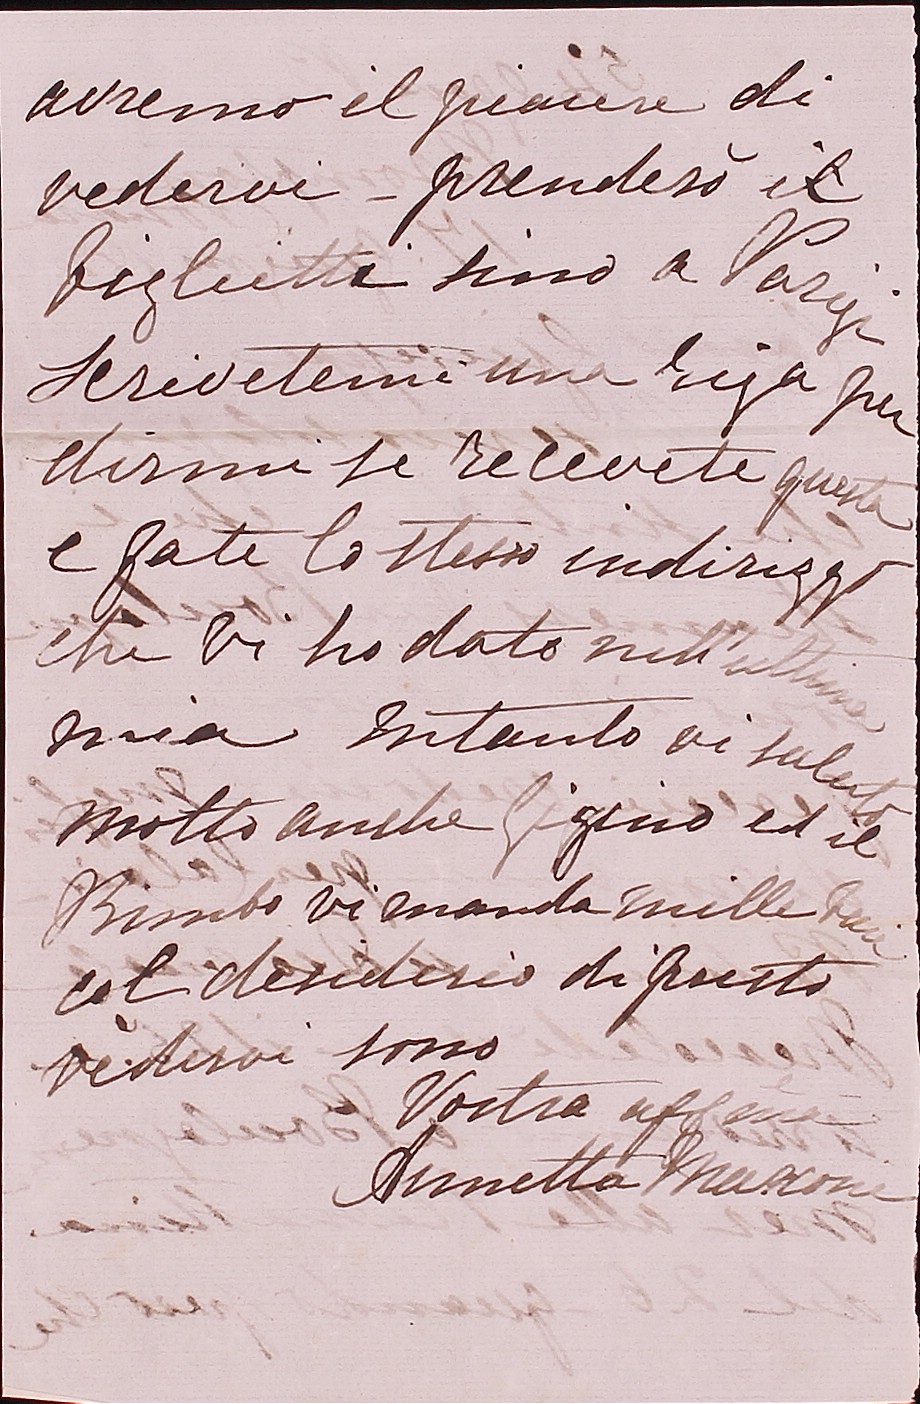 avremo il piacere di
vedervi - prenderò il
biglietti sino a Parigi
Scrivetemi una riga per
dirmi se recevete questa
e fate lo stesso indirizzo
che vi ho dato nell'ultima
mia Intanto vi saluto
molto anche Gigino ed il
Bimbo vi manda mille baci
col desiderio di presto
vedervi sono
Vostra affma
Annetta Marconi